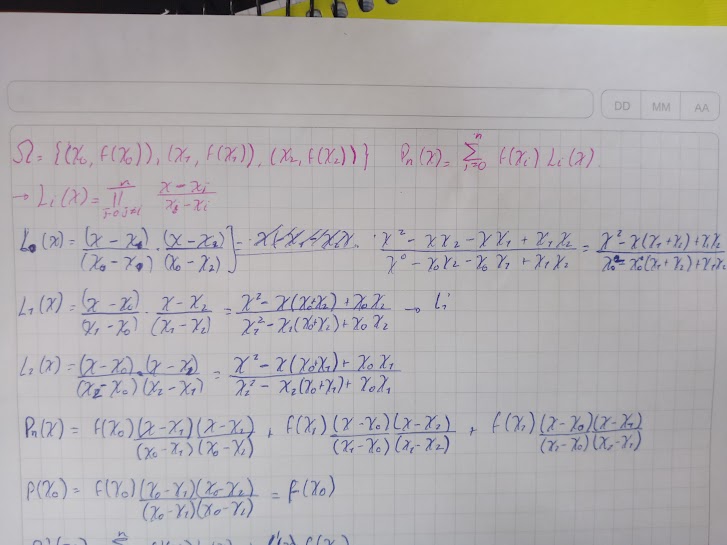 DD MM AA
Ω = {(x₀, f(x₀)), (x₁, f(x₁)), (x₂, f(x₂))} Pₙ(x) = Σⁿᵢ₌₀ f(xᵢ) Lᵢ(x)
→ Lᵢ(x) = ∏ⁿⱼ₌₀,ⱼ≠ᵢ (x − xⱼ)/(xⱼ − xᵢ)
L₀(x) = (x − x₁)/(x₀ − x₁) · (x − x₂)/(x₀ − x₂) = (x² − xx₂ − xx₁ + x₁x₂)/(x⁰ − x₀x₂ − x₀x₁ + x₁x₂) = (x² − x(x₁+x₂) + x₁x₂)/(x₀² − x₀(x₁+x₂) + x₁x₂)
L₁(x) = (x − x₀)/(x₁ − x₀) · (x − x₂)/(x₁ − x₂) = (x² − x(x₀+x₂) + x₀x₂)/(x₁² − x₁(x₀+x₂) + x₀x₂) → L₁
L₂(x) = (x − x₀)·(x − x₁)/(x₂ − x₀)(x₂ − x₁) = (x² − x(x₀+x₁) + x₀x₁)/(x₂² − x₂(x₀+x₁) + x₀x₁)
Pₙ(x) = f(x₀)(x − x₁)(x − x₂)/(x₀ − x₁)(x₀ − x₂) + f(x₁)(x − x₀)(x − x₂)/(x₁ − x₀)(x₁ − x₂) + f(x₂)(x − x₀)(x − x₁)/(x₂ − x₀)(x₂ − x₁)
P(x₀) = f(x₀)(x₀ − x₁)(x₀ − x₂)/(x₀ − x₁)(x₀ − x₂) = f(x₀)